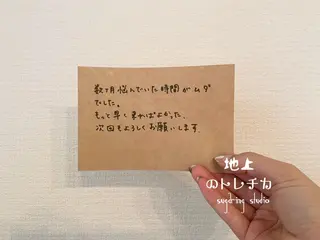 数ヶ月悩んでいた時間がムダ
でした。
もって早く来ればよかった.
次回もよろしくお願いします.
地上
のトレチカ
sugd-ing studio